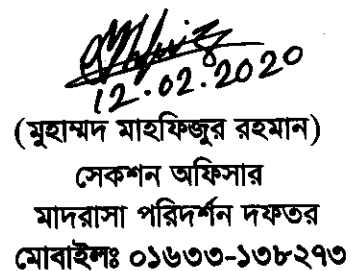 12.02.2020
(মুহাম্মদ মাহফিজুর রহমান)
সেকশন অফিসার
মাদরাসা পরিদর্শন দফতর
মোবাইলঃ ০১৬৩৩-১৩৮২৭৩